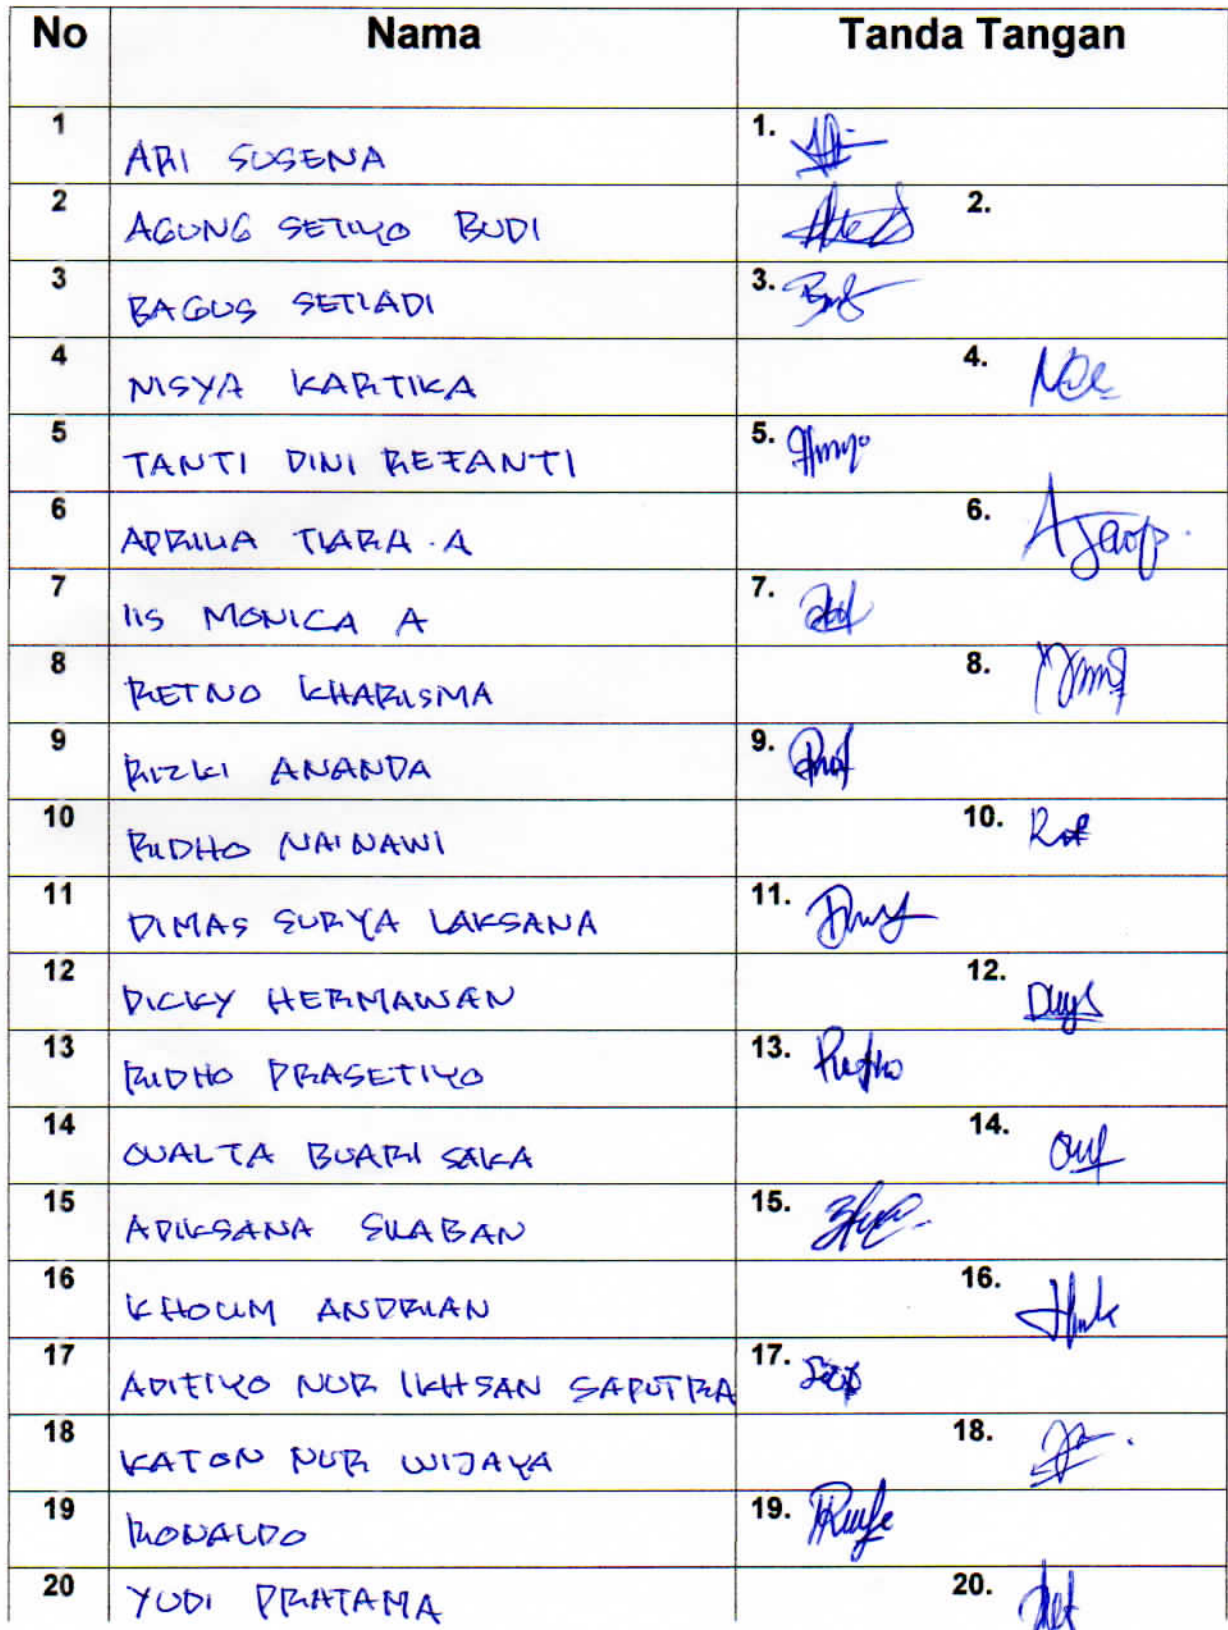 No Nama Tanda Tangan
1 ARI SUSENA 1.
2 AGUNG SETIYO BUDI 2.
3 BAGUS SETIADI 3.
4 NISYA KARTIKA 4.
5 TANTI DINI REFANTI 5.
6 APRILIA TIARA . A 6.
7 IIS MONICA A 7.
8 RETNO KHARISMA 8.
9 RIZKI ANANDA 9.
10 RIDHO NAINAWI 10.
11 DIMAS SURYA LAKSANA 11.
12 DICKY HERMAWAN 12.
13 RIDHO PRASETIYO 13.
14 OUALTA BUARI SAKA 14.
15 ADIKSANA SILABAN 15.
16 KHOLIM ANDRIAN 16.
17 ADITIYO NUR IKHSAN SAPUTRA 17.
18 KATON NUR WIJAYA 18.
19 RONALDO 19.
20 YUDI PRATAMA 20.